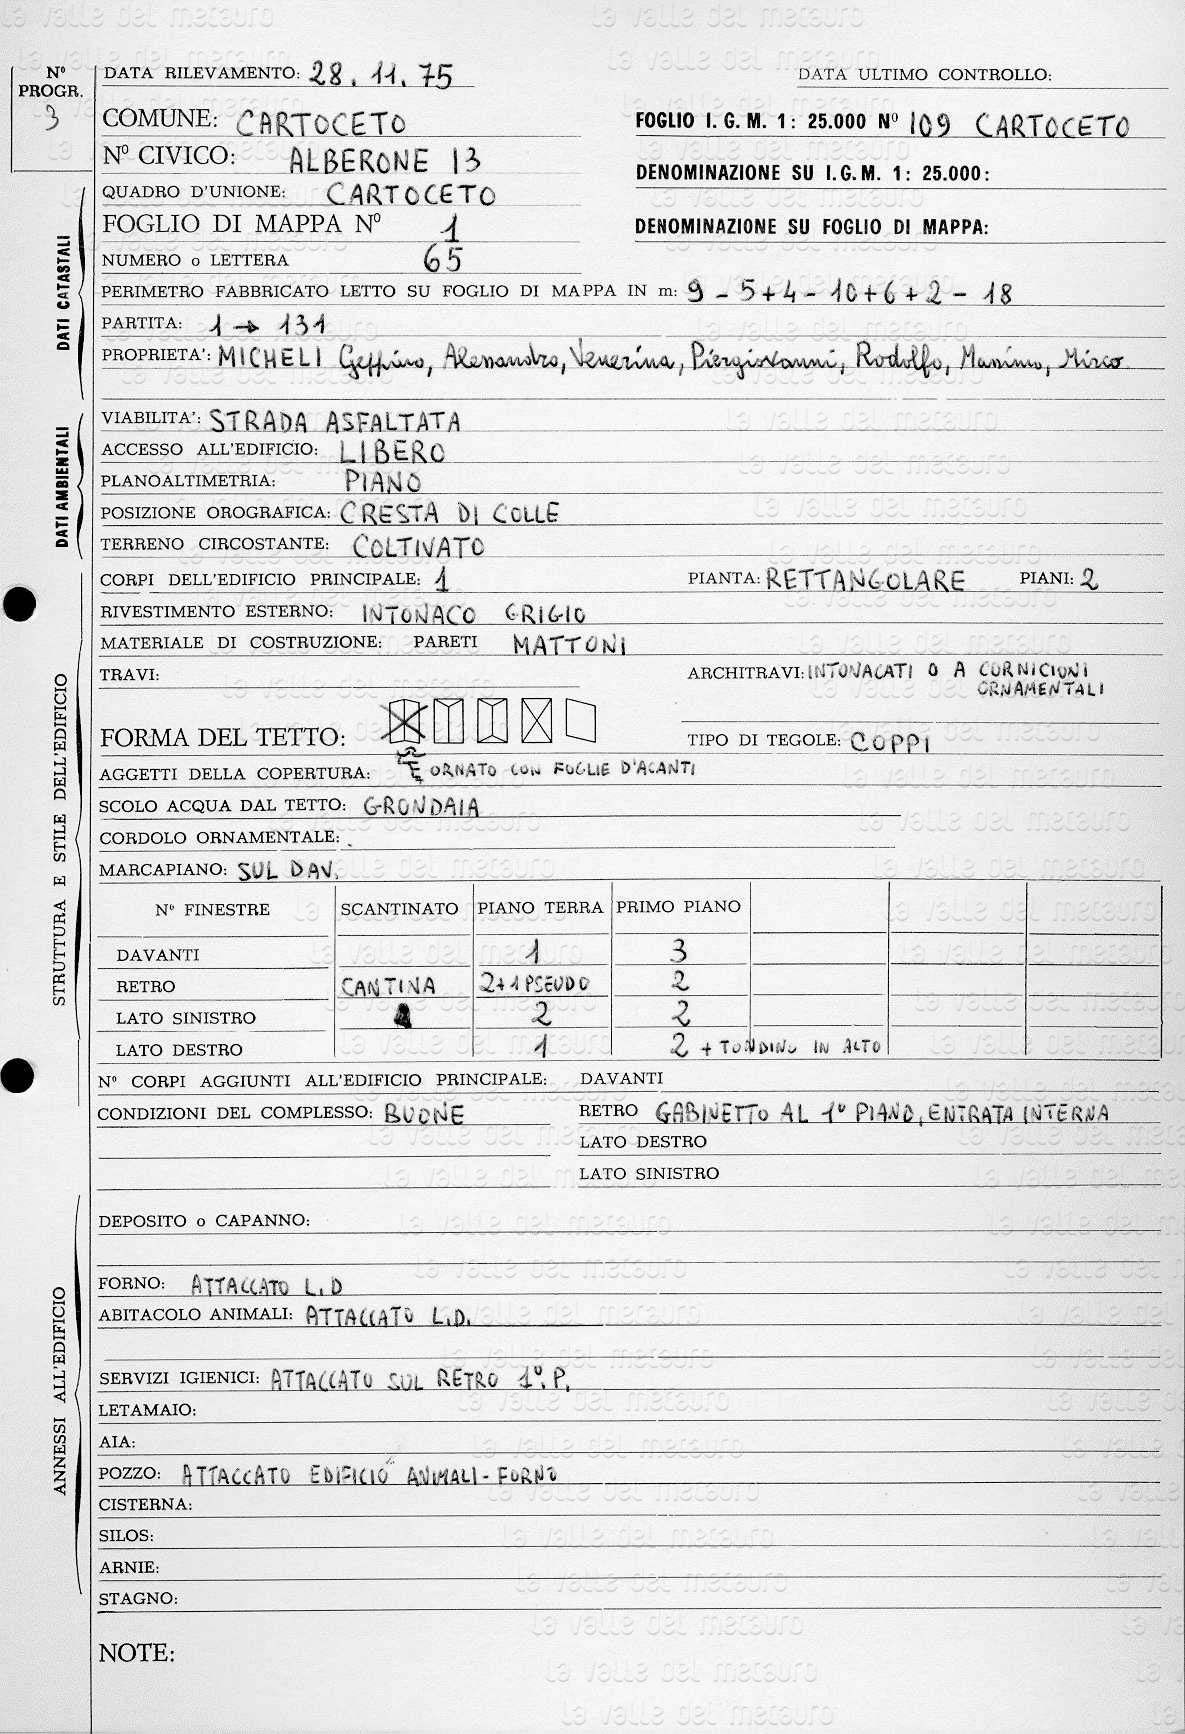 Nº PROGR. 3
DATA RILEVAMENTO: 28.11.75
DATA ULTIMO CONTROLLO:
COMUNE: CARTOCETO
FOGLIO I. G. M. 1: 25.000 Nº 109 CARTOCETO
Nº CIVICO: ALBERONE 13
DENOMINAZIONE SU I. G. M. 1: 25.000:
QUADRO D'UNIONE: CARTOCETO
FOGLIO DI MAPPA Nº 1
DENOMINAZIONE SU FOGLIO DI MAPPA:
NUMERO o LETTERA 65
DATI CATASTALI
PERIMETRO FABBRICATO LETTO SU FOGLIO DI MAPPA IN m: 9 - 5 + 4 - 10 + 6 + 2 - 18
PARTITA: 1 → 131
PROPRIETA': MICHELI Geffino, Alessandro, Venerina, Piergiovanni, Rodolfo, Massimo, Mirco
DATI AMBIENTALI
VIABILITA': STRADA ASFALTATA
ACCESSO ALL'EDIFICIO: LIBERO
PLANOALTIMETRIA: PIANO
POSIZIONE OROGRAFICA: CRESTA DI COLLE
TERRENO CIRCOSTANTE: COLTIVATO
STRUTTURA E STILE DELL'EDIFICIO
CORPI DELL'EDIFICIO PRINCIPALE: 1 PIANTA: RETTANGOLARE PIANI: 2
RIVESTIMENTO ESTERNO: INTONACO GRIGIO
MATERIALE DI COSTRUZIONE: PARETI MATTONI
TRAVI:
ARCHITRAVI: INTONACATI O A CORNICIONI
ORNAMENTALI
FORMA DEL TETTO:
TIPO DI TEGOLE: COPPI
AGGETTI DELLA COPERTURA: ORNATO CON FOGLIE D'ACANTI
SCOLO ACQUA DAL TETTO: GRONDAIA
CORDOLO ORNAMENTALE:
MARCAPIANO: SUL DAV.
Nº FINESTRE SCANTINATO PIANO TERRA PRIMO PIANO
DAVANTI 1 3
RETRO CANTINA 2+1 PSEUDO 2
LATO SINISTRO 2 2
LATO DESTRO 1 2 + TONDINO IN ALTO
Nº CORPI AGGIUNTI ALL'EDIFICIO PRINCIPALE: DAVANTI
CONDIZIONI DEL COMPLESSO: BUONE
RETRO GABINETTO AL 1º PIANO, ENTRATA INTERNA
LATO DESTRO
LATO SINISTRO
ANNESSI ALL'EDIFICIO
DEPOSITO o CAPANNO:
FORNO: ATTACCATO L.D
ABITACOLO ANIMALI: ATTACCATO L.D.
SERVIZI IGIENICI: ATTACCATO SUL RETRO 1º. P.
LETAMAIO:
AIA:
POZZO: ATTACCATO EDIFICIO ANIMALI - FORNO
CISTERNA:
SILOS:
ARNIE:
STAGNO:
NOTE:
la valle del metauro